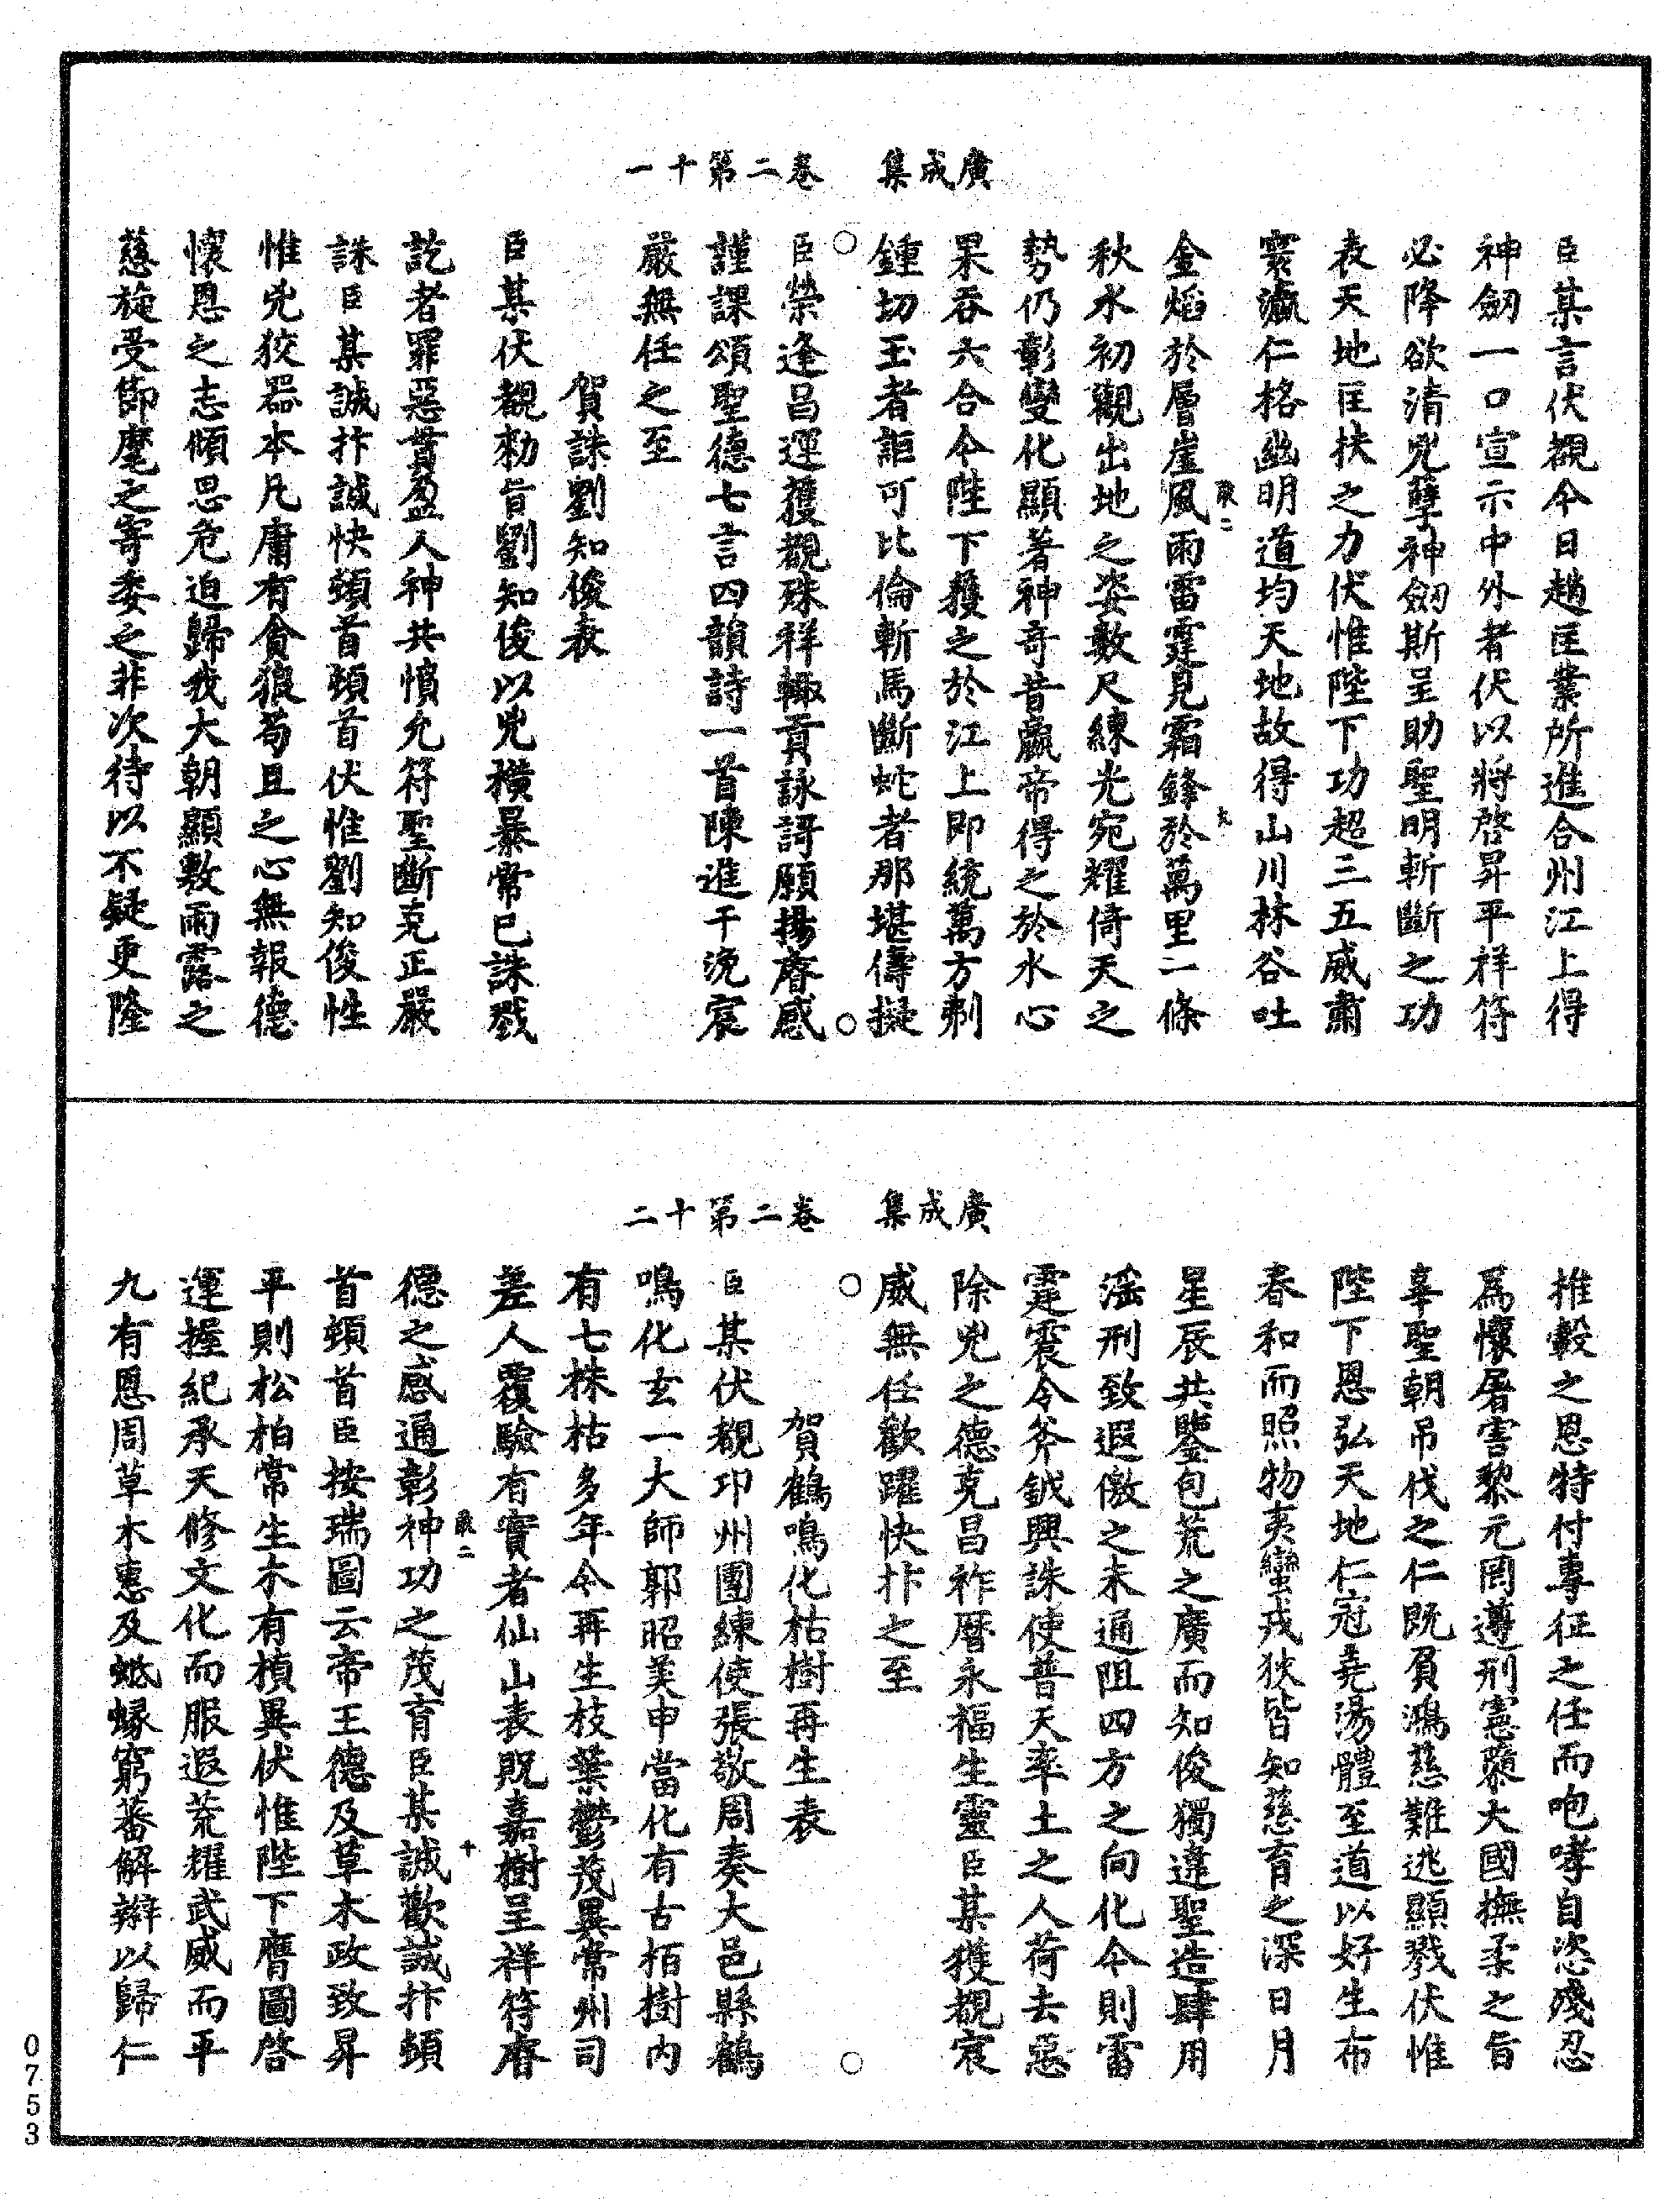 廣成集　卷二第十一
臣某言伏覩今日趙匡業所進合州江上得
神劒一口宣示中外者伏以將啓昇平祥符
必降欲清兇孽神劒斯呈助聖明斬斷之功
表天地匡扶之力伏惟陛下功超三五威肅
寰瀛仁格幽明道均天地故得山川林谷吐
金焰於層崖風雨雷霆見霜鋒於萬里一條
秋水初觀出地之姿數尺練光宛耀倚天之
勢仍彰變化顯著神奇昔嬴帝得之於水心
果吞六合今陛下獲之於江上即統萬方剸
鍾切玉者詎可比倫斬馬斷蛇者那堪儔擬
臣榮逢昌運獲覩殊祥輙貢詠謌願揚睿感
謹課頌聖德七言四韻詩一首陳進干浼宸
嚴無任之至
賀誅劉知俊表
臣某伏覩勑旨劉知俊以兇橫暴常已誅戮
訖者罪惡貫盈人神共憤允符聖斷克正嚴
誅臣某誠抃誠快頓首頓首伏惟劉知俊性
惟兇狡器本凡庸有貪狼苟且之心無報德
懷恩之志傾思危迫歸我大朝顯敷雨露之
慈旋受節麾之寄委之非次待以不疑更隆
廣成集　卷二第十二
推轂之恩特付專征之任而咆哮自恣殘忍
爲懷屠害黎元罔遵刑憲隳大國撫柔之旨
辜聖朝吊伐之仁旣負鴻慈難逃顯戮伏惟
陛下恩弘天地仁冠堯湯體至道以好生布
春和而照物夷蠻戎狄皆知慈育之深日月
星辰共鑒包荒之廣而知俊獨違聖造肆用
滛刑致遐徼之未通阻四方之向化今則雷
霆震令斧鉞興誅使普天率土之人荷去惡
除兇之德克昌祚曆永福生靈臣某獲覩宸
威無任歡躍快抃之至
賀鶴鳴化枯樹再生表
臣某伏覩卬州團練使張敬周奏大邑縣鶴
鳴化玄一大師郭昭美申當化有古栢樹內
有七株枯多年今再生枝葉鬱茂異常州司
差人覆驗有實者仙山表貺嘉樹呈祥符睿
德之感通彰神功之茂育臣某誠歡誠抃頓
首頓首臣按瑞圖云帝王德及草木政致昇
平則松柏常生木有楨異伏惟陛下膺圖啓
運握紀承天修文化而服遐荒耀武威而平
九有恩周草木惠及蚳蝝窮蕃解辮以歸仁
0753